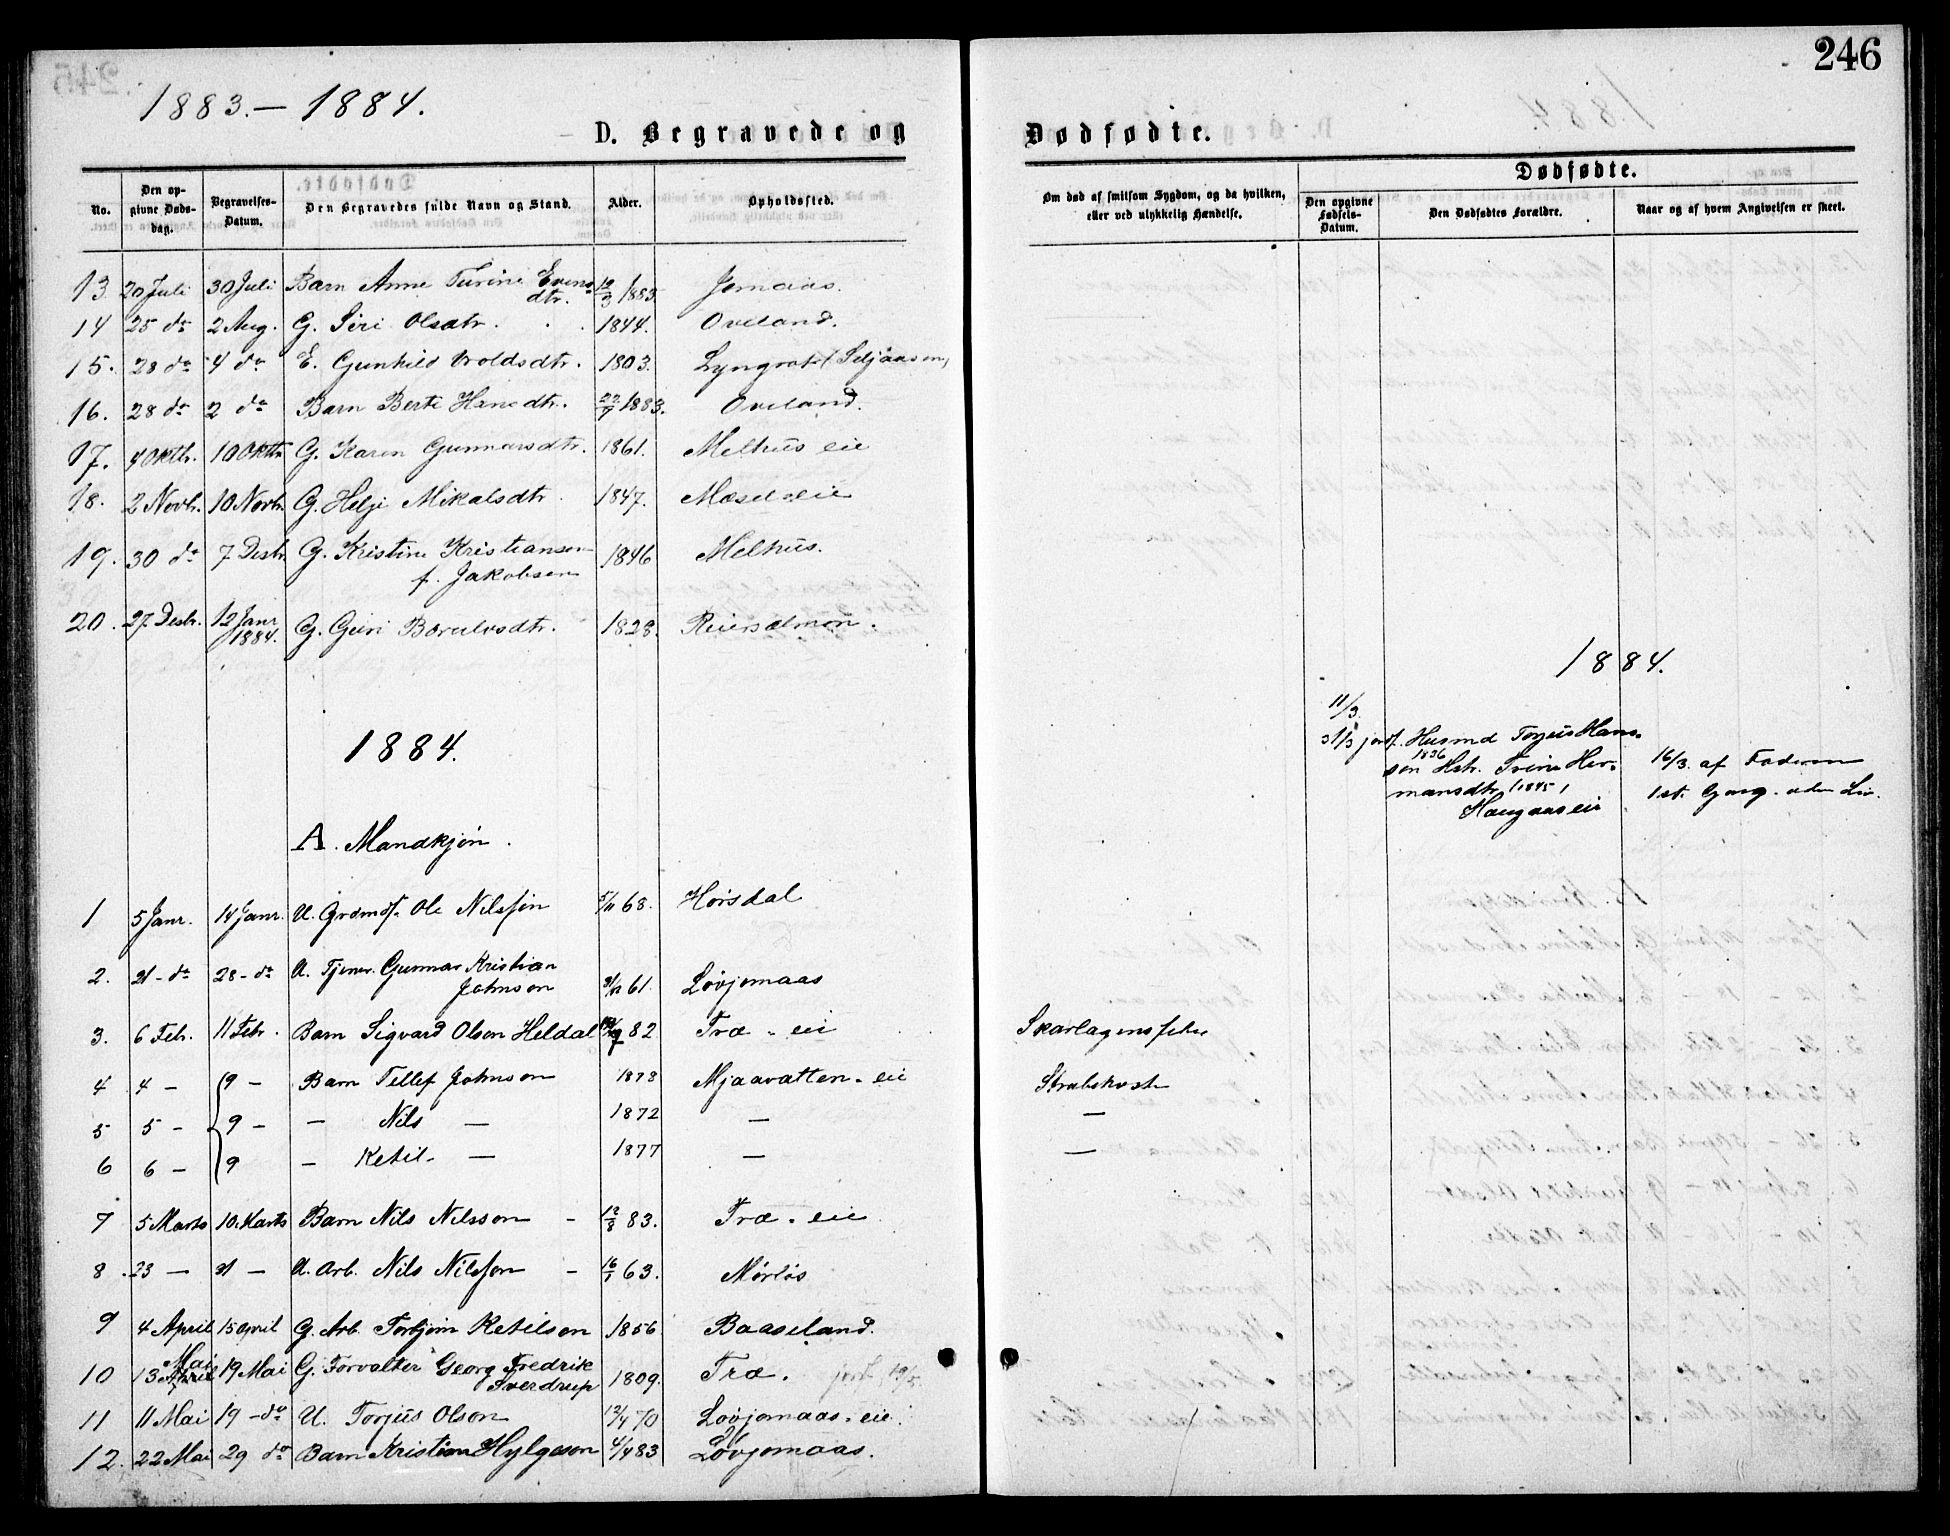 246
1883.— 1884.
D. Begravede og Dødfødte.
No.
Den opgivne Dødsdag.
Begravelses-Datum.
Den Begravedes fulde Navn og Stand.
Alder.
Opholdssted.
Om død af smitsom Sygdom, og da hvilken, eller ved ulykkelig Hændelse.
Dødfødte.
Den opgivne Fødsels-Datum.
Den Dødfødtes Forældre.
Naar og af hvem Angivelsen er skeet.
13 20 Juli 30 Juli Barn Anne Turine Evensdtr. 12/3 1883. Jomaas.
14 25 do 2 Aug. G. Siri Olsdtr. 1844. Oveland.
15. 28 do 4 do E. Gunhild Aroldsdtr. 1803. Lyngrot (Seljaasen)
16. 28 do 2 do Barn Berte Hansdtr. 22/7 1883. Oveland.
17. 4 Oktb. 10 Oktb. G. Karen Gunnarsdtr. 1861. Melhus eie
18. 2 Novb. 10 Novb. G. Helje Mikalsdtr. 1847. Mæsel-eie
19. 30 do 7 Desb. G. Kristine Kristiansen f. Jakobsen 1846 Melhus.
20. 27 Desb. 12 Janr 1884. G. Guri Borulvsdtr. 1828. Reiersølmon.
1884.
11/3.
31/3 jordf. Husmd Torjus Hans-
søn 1836 Hstr. Trine Her-
mansdtr. (1845)
Haugaas eie
16/3. af Faderen
1st. Gang. uden Liv.
1884.
A. Mandkjøn.
1 5 Janr. 14 Janr. U. Grdmds. Ole Nilssøn 5/11 68. Hørsdal
2. 21 - do 28 - do U. Tjener. Gunnar Kristian Johnson 31/12 61. Løvjomaas
3. 6 Feb. 11 Febr. Barn Sigvard Olson Heldal 82 Træ - eie Skarlagensfeber
4 4 — 9 — Barn Tellef Johnson 1878 Mjaavatten - eie Strubehoste
5 5 - 9 - — Nils — 1872 — —
6 6 — 9 — Ketil — 1877 — —
7 5 Marts 10. Marts Barn Nils Nilsson - 12/8 83. Træ - eie
8 23 — 31 — U. Arb. Nils Nilssøn - 16/1 63. Mørløs
9 4 April 15 April G. Arb. Torbjørn Ketilson 1856 Baaseland.
10 13 April Mai 19 Mai G. Forvalter Georg Fredrik Sverdrup 1809. Træ. jorf. 19/5.
11 11 Mai 19 - do U. Torjus Olson 12/4 70 Løvjomaas - eie
12. 22 Mai 29 do Barn Kristian Hylgeson 4/4 83 Løvjomaas.